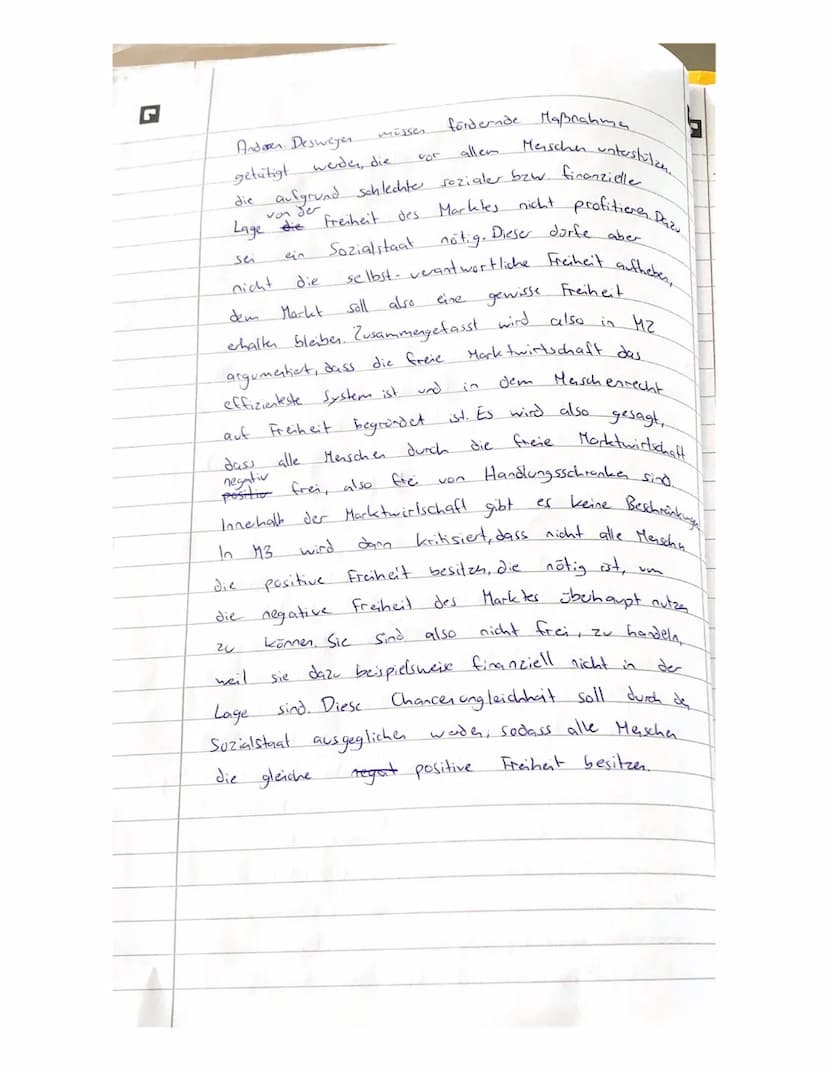 Anderen. Deswegen müssen fördernde Maßnahmen
getätigt werden, die vor allem Menschen unterstützen,
die aufgrund schlechter sozialer bzw. finanzieller
Lage die von der Freiheit des Marktes nicht profitieren. Dazu
sei ein Sozialstaat nötig. Dieser dürfe aber
nicht die selbst-verantwortliche Freiheit aufheben,
dem Markt soll also eine gewisse Freiheit
erhalten bleiben. Zusammengefasst wird also in M2
argumentiert, dass die freie Marktwirtschaft das
effizienteste System ist und in dem Menschenrecht
auf Freiheit begründet ist. Es wird also gesagt,
dass alle Menschen durch die freie Marktwirtschaft
positiv negativ frei, also frei von Handlungsschranken sind.
Innerhalb der Marktwirtschaft gibt es keine Beschränkungen
In M3 wird dann kritisiert, dass nicht alle Menschen
die positive Freiheit besitzen, die nötig ist, um
die negative Freiheit des Marktes überhaupt nutzen
zu können. Sie sind also nicht frei, zu handeln,
weil sie dazu beispielsweise finanziell nicht in der
Lage sind. Diese Chancenungleichheit soll durch den
Sozialstaat ausgeglichen werden, sodass alle Menschen
die gleiche negat positive Freiheit besitzen.